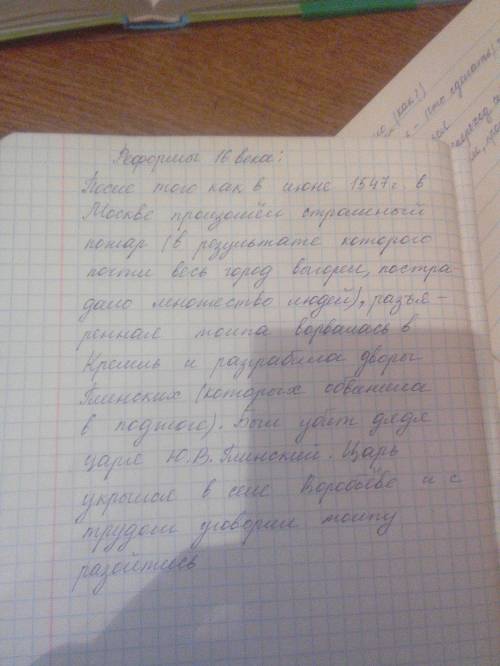 Реформы 16 века:
После того как в июне 1547г. в
Москве произошёл страшный
пожар (в результате которого
почти весь город выгорел, постра
дало множество людей), разъя-
ренная толпа ворвалась в
Кремль и разграбила дворы
Глинских (которых обвинила
в поджоге). Был убит дядя
царя Ю.В.Глинский. Царь
укрылся в селе Воробьёво и с
трудом уговорил толпу
разойтись
(как?)
что сделать,